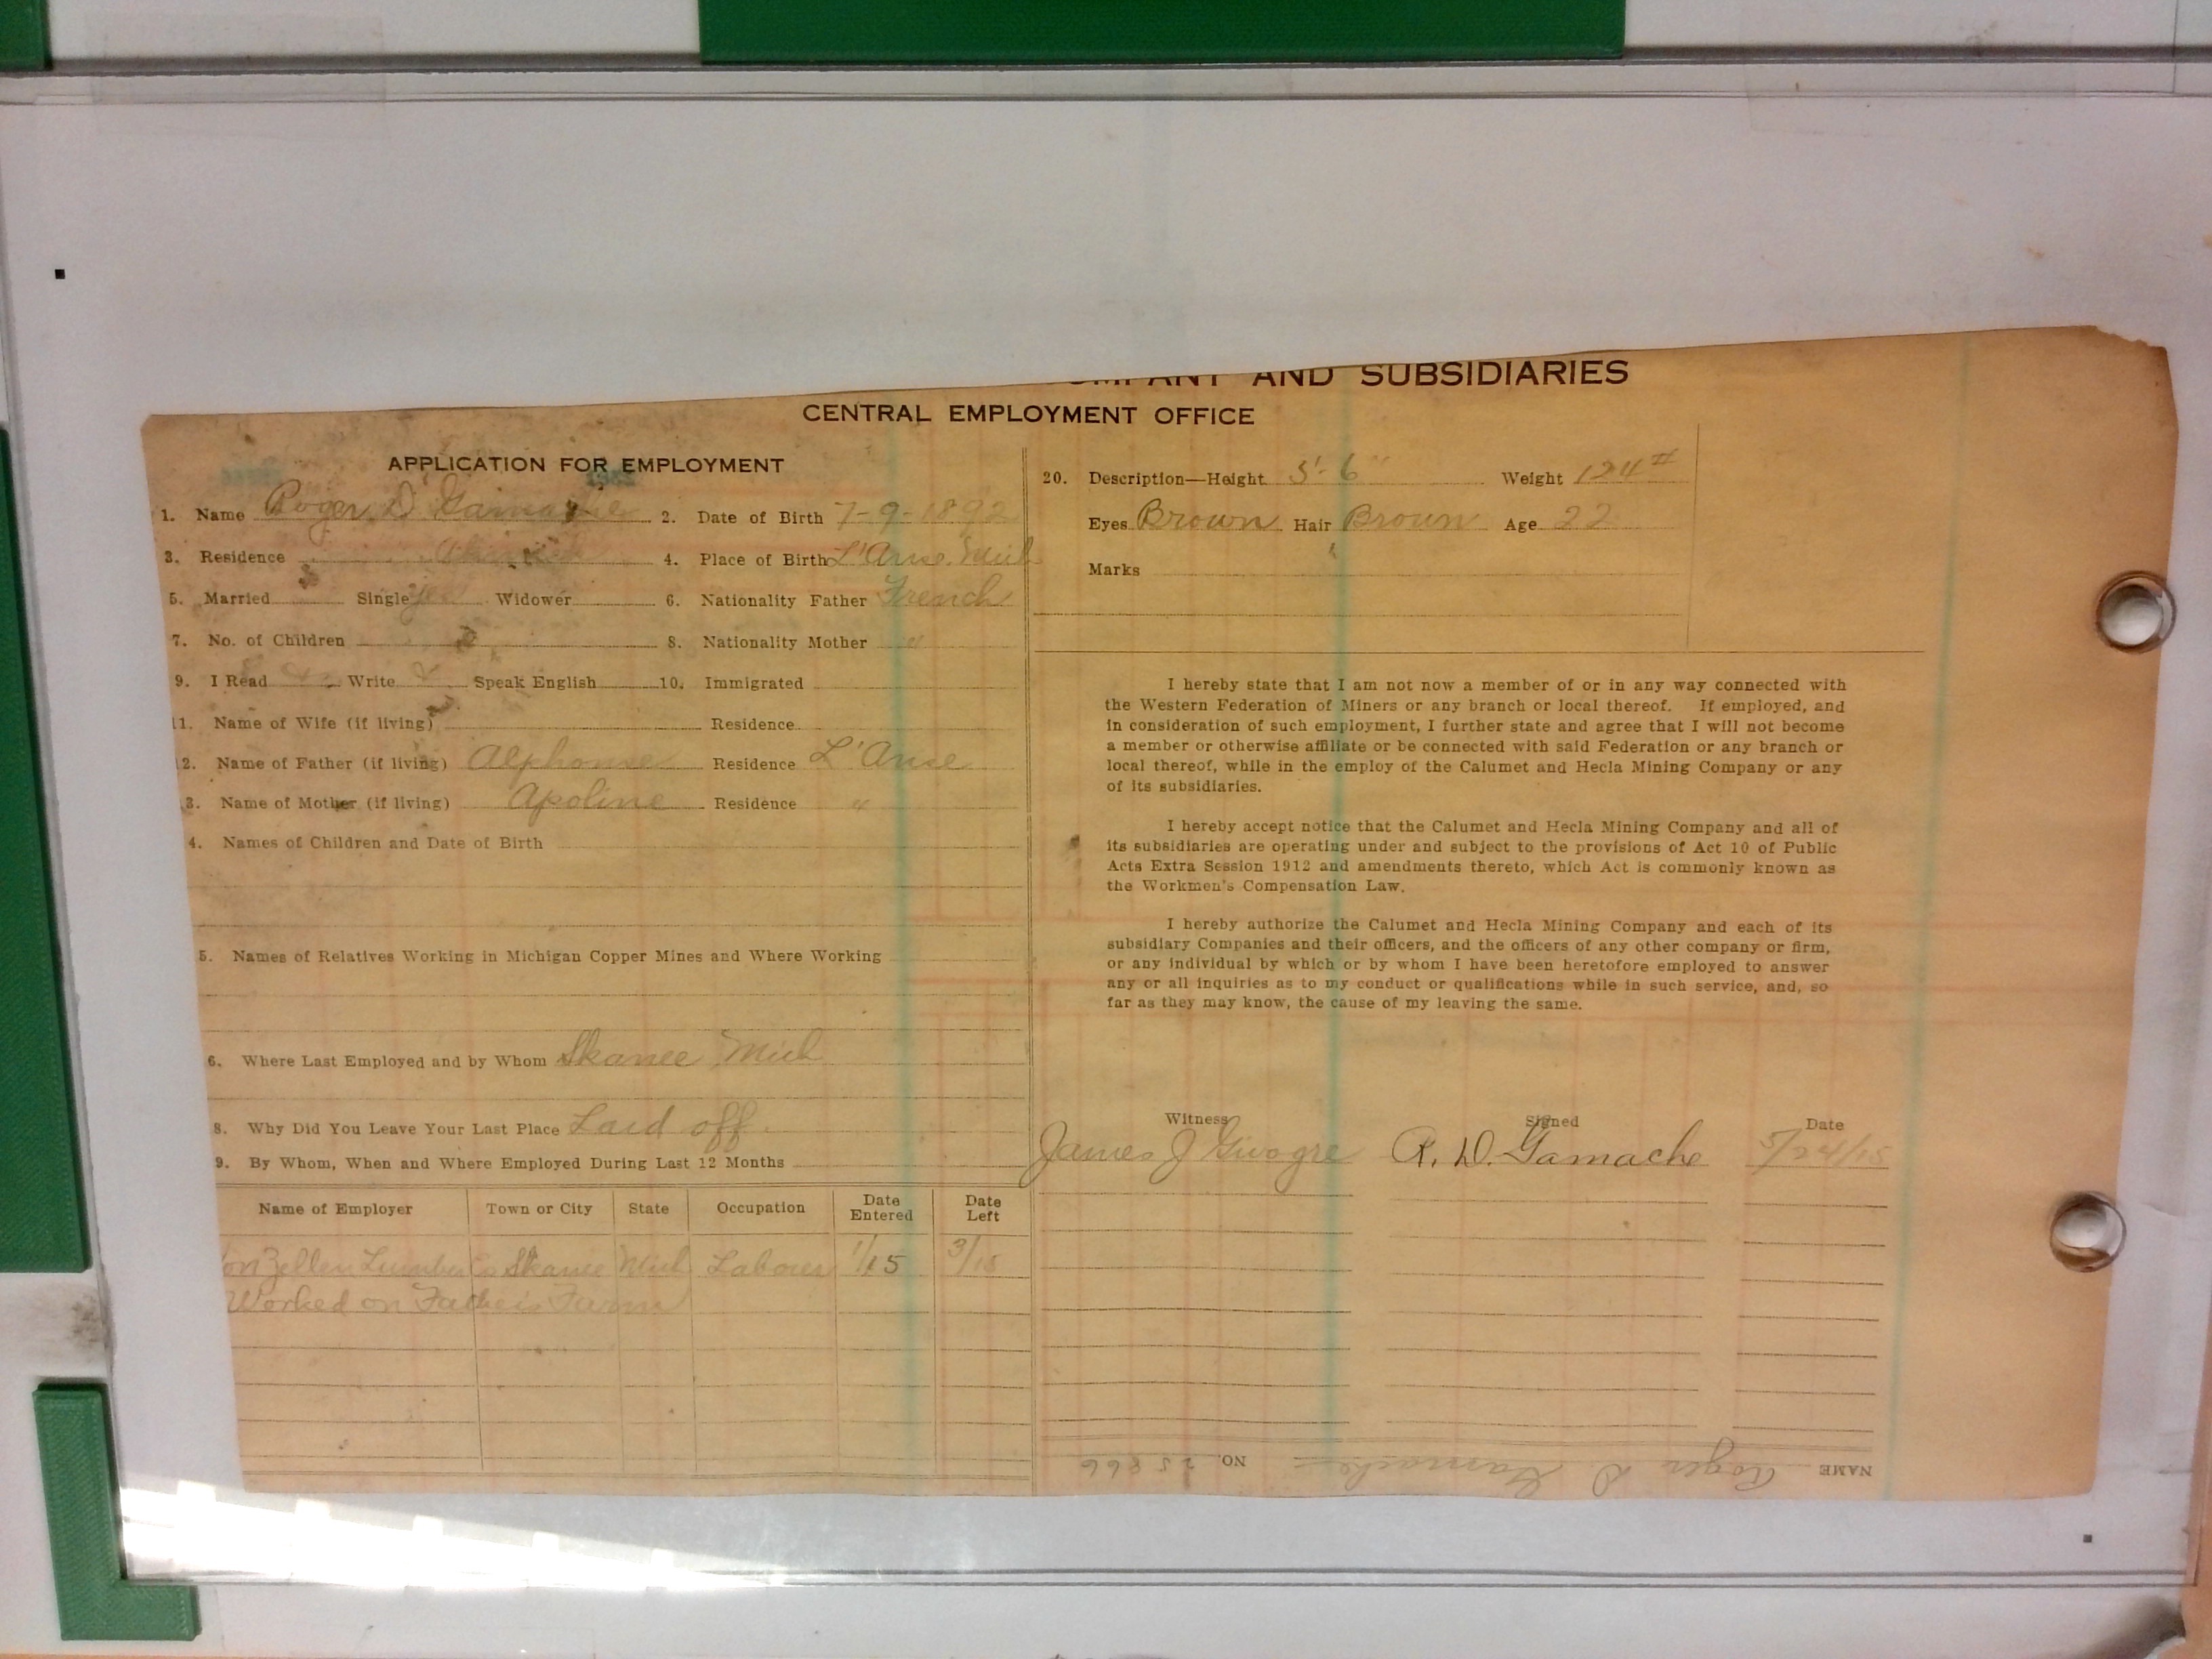 COMPANY AND SUBSIDIARIES
CENTRAL EMPLOYMENT OFFICE
APPLICATION FOR EMPLOYMENT
1. Name Roger D. Gamache 2. Date of Birth 7-9-1892
3. Residence 4. Place of Birth L'Anse Mich
5. Married Single yes Widower 6. Nationality Father French
7. No. of Children 8. Nationality Mother "
9. I Read Write Speak English 10. Immigrated
11. Name of Wife (if living) Residence
12. Name of Father (if living) Alphonse Residence L'Anse
3. Name of Mother (if living) Apoline Residence "
4. Names of Children and Date of Birth
5. Names of Relatives Working in Michigan Copper Mines and Where Working
6. Where Last Employed and by Whom Skanee Mich
8. Why Did You Leave Your Last Place Laid off.
9. By Whom, When and Where Employed During Last 12 Months
Name of Employer Town or City State Occupation Date Entered Date Left
Zellen Lumber Co Skanee Mich Laborer 1/15 3/15
Worked on Fathers Farm
20. Description—Height 5'-6" Weight 124#
Eyes Brown Hair Brown Age 22
Marks
I hereby state that I am not now a member of or in any way connected with
the Western Federation of Miners or any branch or local thereof. If employed, and
in consideration of such employment, I further state and agree that I will not become
a member or otherwise affiliate or be connected with said Federation or any branch or
local thereof, while in the employ of the Calumet and Hecla Mining Company or any
of its subsidiaries.
I hereby accept notice that the Calumet and Hecla Mining Company and all of
its subsidiaries are operating under and subject to the provisions of Act 10 of Public
Acts Extra Session 1912 and amendments thereto, which Act is commonly known as
the Workmen's Compensation Law.
I hereby authorize the Calumet and Hecla Mining Company and each of its
subsidiary Companies and their officers, and the officers of any other company or firm,
or any individual by which or by whom I have been heretofore employed to answer
any or all inquiries as to my conduct or qualifications while in such service, and, so
far as they may know, the cause of my leaving the same.
Witness Signed Date
James J R. D. Gamache 5/24/15
NAME Roger D. Gamache NO. 25866